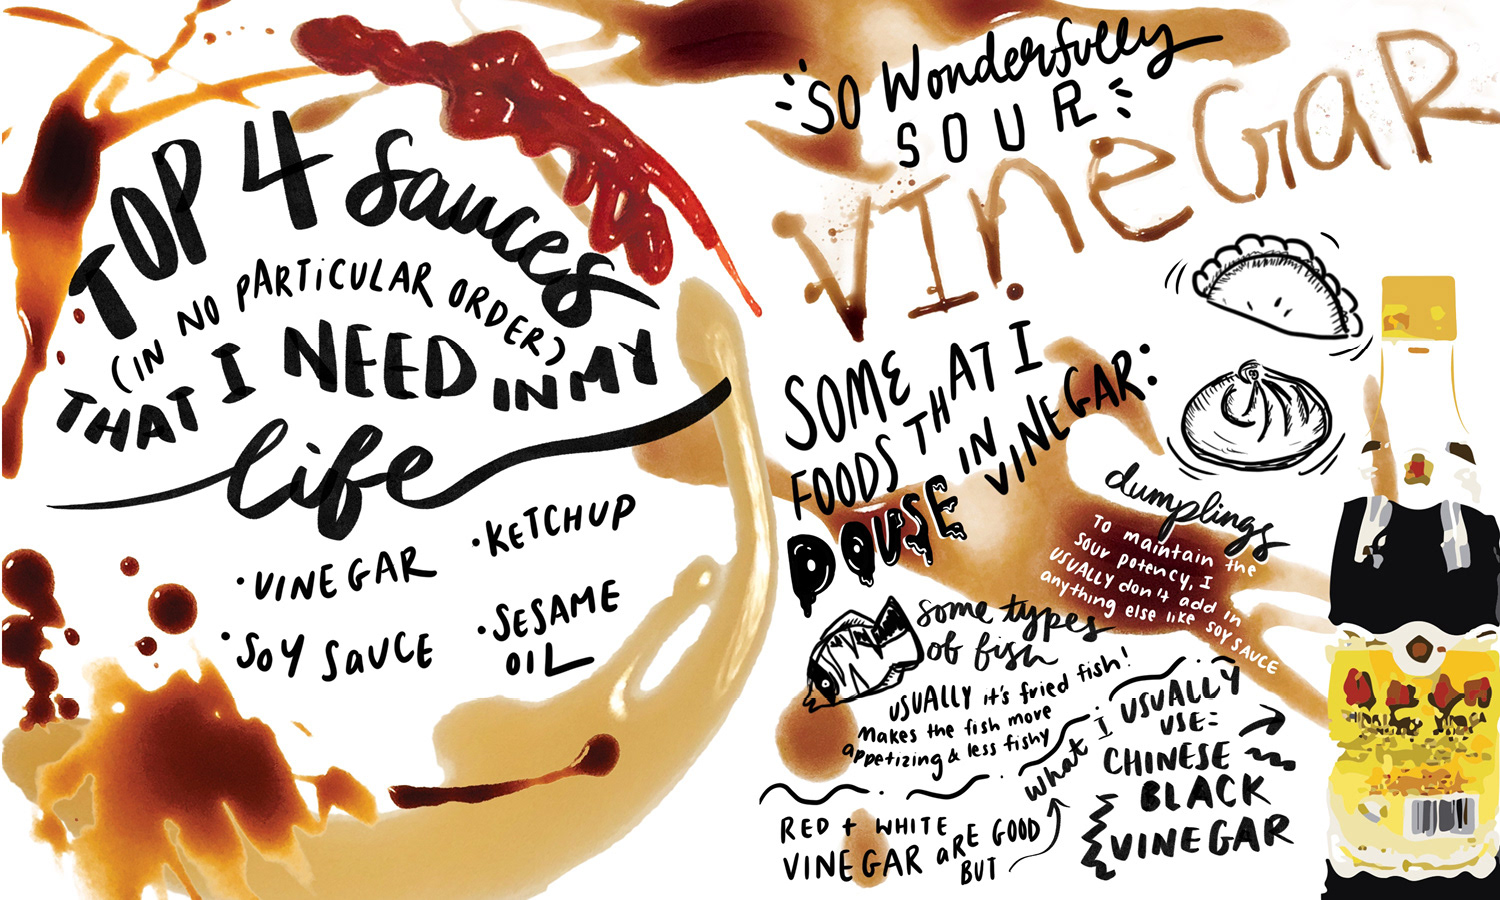 TOP 4 Sauces
(IN NO PARTiCULAR ORDER)
THAT I NEED IN MY
life
• VINEGAR
• KETCHUP
• SOY SAUCE
• SESAME
OIL
SO Wonderfully
SOUR
VINeGaR
SOME
FOODS THAT I
DOUSE IN
VINEGAR:
dumplings
To maintain the
sour potency, I
USUALLY don't add in
anything else like SOY SAUCE
some types
of fish
USUALLY it's fried fish!
Makes the fish more
appetizing & less fishy
RED + WHITE
VINEGAR aRE GOOD
BUT
What I
USUALLY
USE:
CHINESE
BLACK
VINEGAR